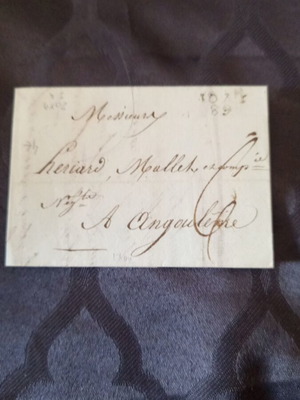 Messieurs
heriard, Mallet et comp.ie
Neg.ts
A Angoulême